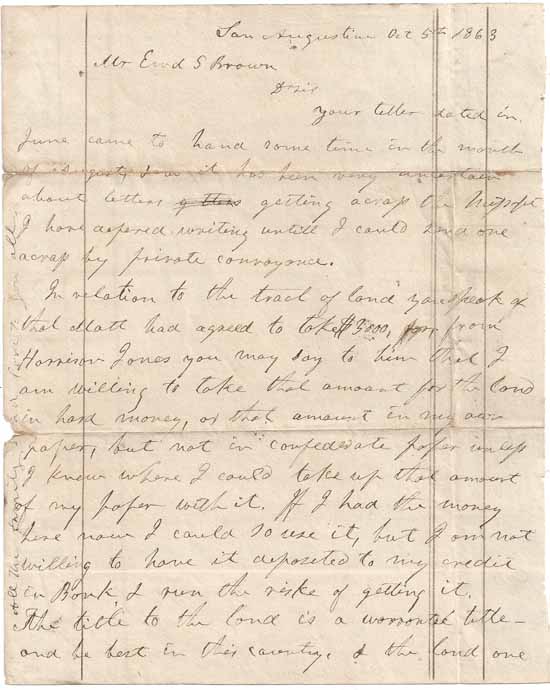 San Augustine Oct 5th 1863
Mr Ewd S Brown
Dr sir
your letter dated in
June came to hand some time in the month
of August & as it has been very uncertain
about letters getting across the
I have defered writing untill I could send one
across by private convoyance.
In relation to the tract of land you speak of
that Matt had agreed to take $3000, from
Harrison Jones you may say to him that I
am willing to take that amount for the land
in hard money, or that amount in my own
paper, but not in confederate paper unless
I knew where I could take up that amount
of my paper with it. If I had the money
here now I could so use it, but I am not
willing to have it deposited to my credit
in Bank & run the riske of getting it.
The title to the land is a warrantee title
and he best in this country. & the land one
All the family love to you all